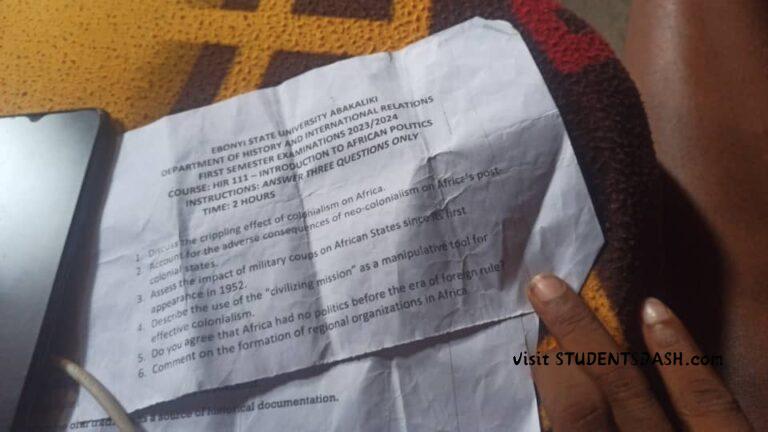 EBONYI STATE UNIVERSITY ABAKALIKI
DEPARTMENT OF HISTORY AND INTERNATIONAL RELATIONS
FIRST SEMESTER EXAMINATIONS 2023/2024
COURSE: HIR 111 – INTRODUCTION TO AFRICAN POLITICS
INSTRUCTIONS: ANSWER THREE QUESTIONS ONLY
TIME: 2 HOURS
1. Discuss the crippling effect of colonialism on Africa.
2. Account for the adverse consequences of neo-colonialism on Africa's post-
colonial states.
3. Assess the impact of military coups on African States since its first
appearance in 1952.
4. Describe the use of the "civilizing mission" as a manipulative tool for
effective colonialism.
5. Do you agree that Africa had no politics before the era of foreign rule?
6. Comment on the formation of regional organizations in Africa.
as a source of historical documentation.
Visit STUDENTSDASH.com